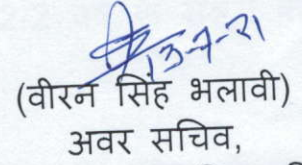 13-7-21
(वीरन सिंह भलावी)
अवर सचिव,